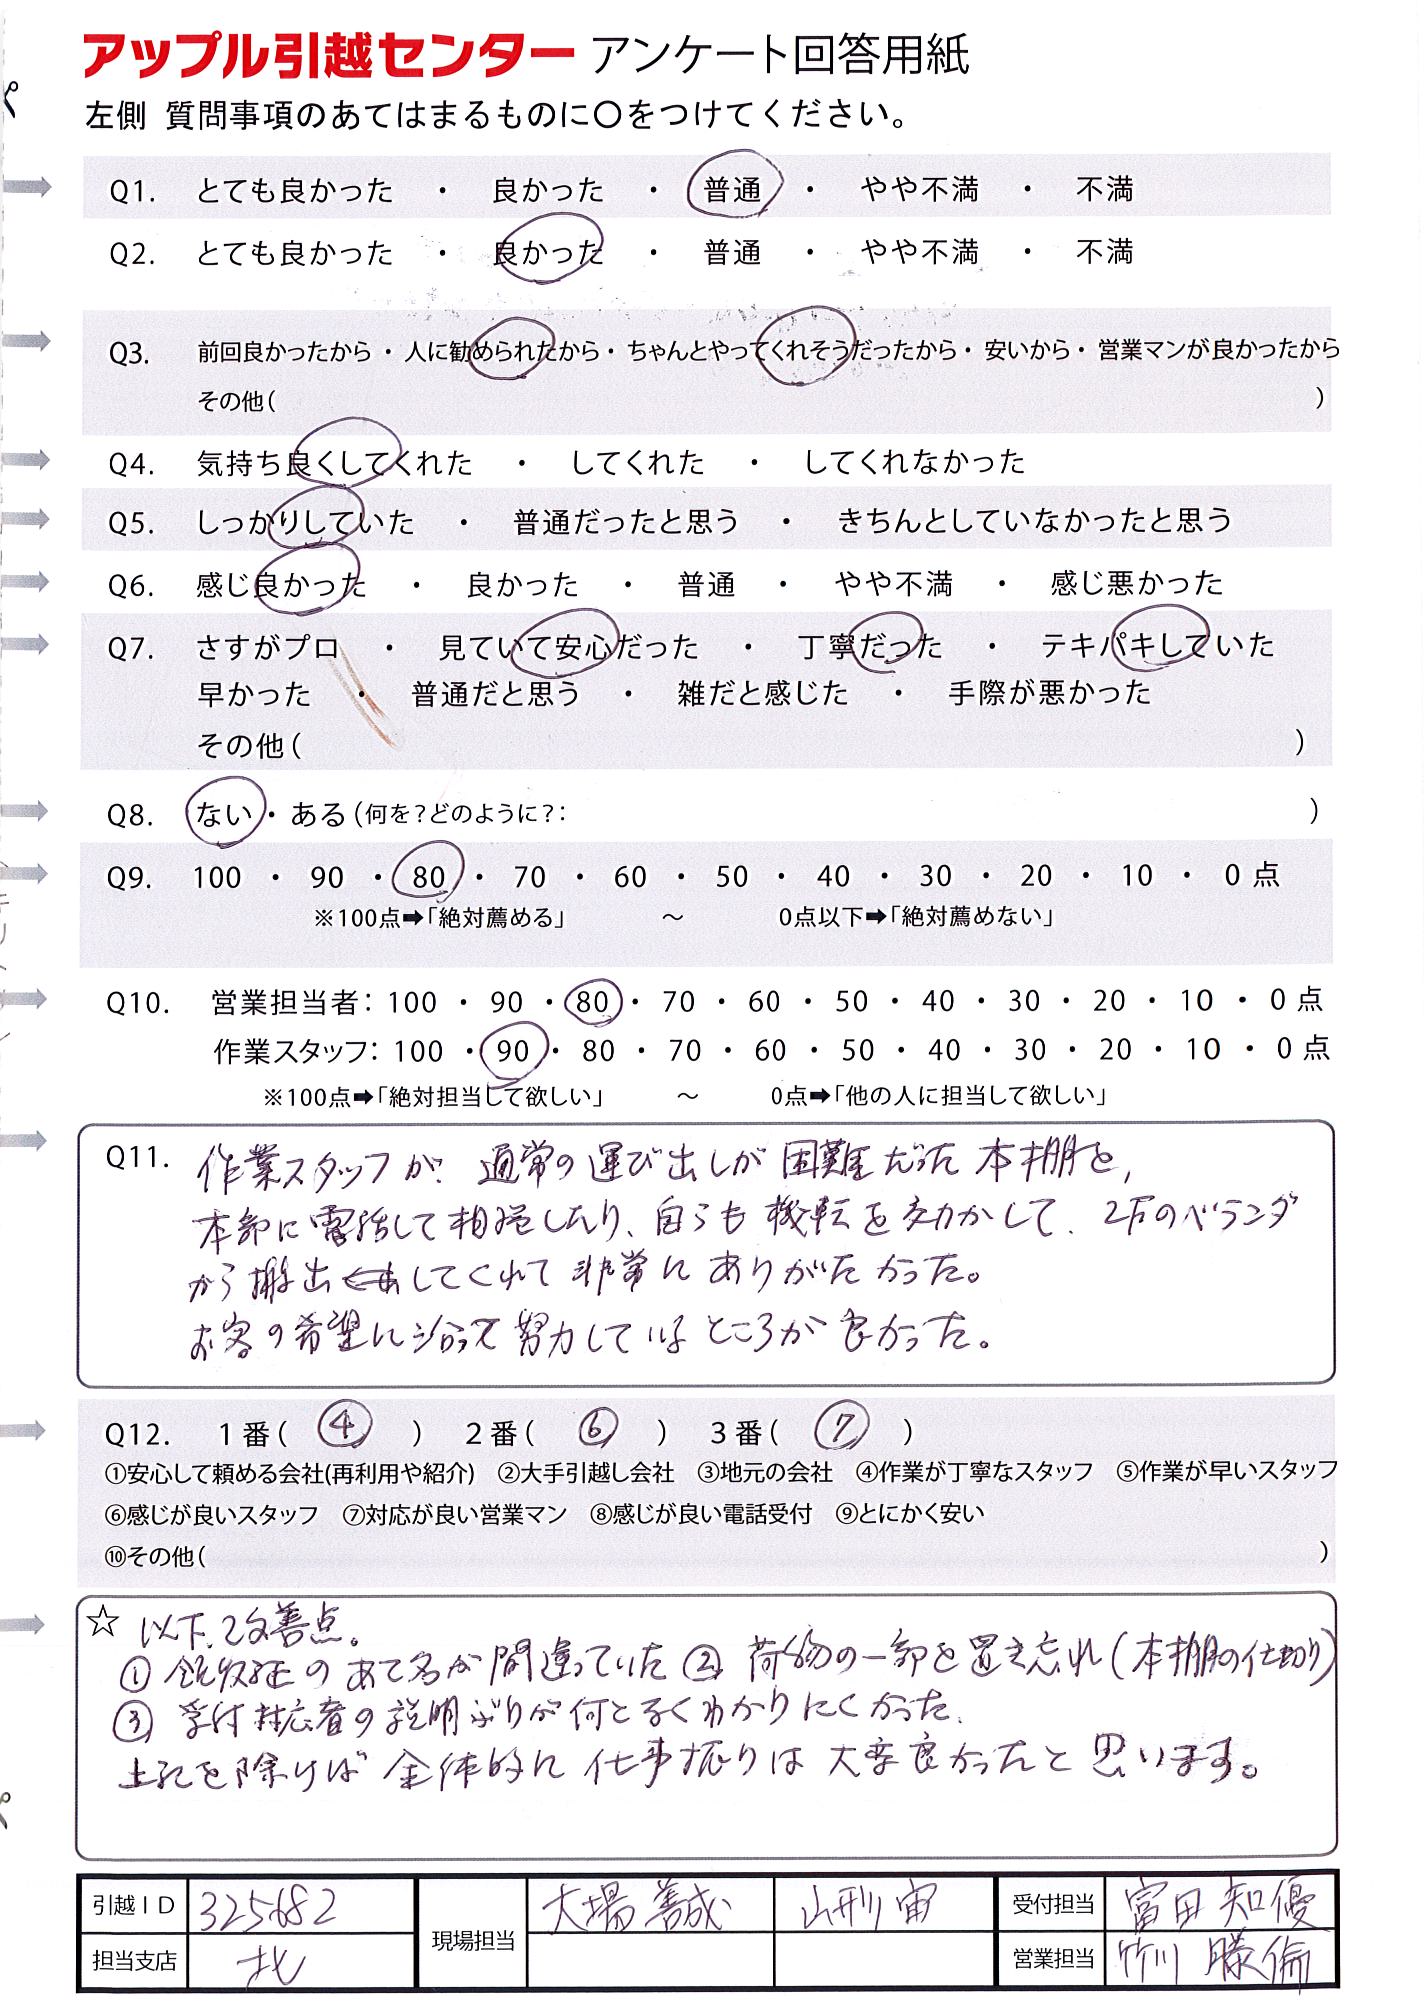 アップル引越センター アンケート回答用紙
左側 質問事項のあてはまるものに〇をつけてください。
Q1. とても良かった ・ 良かった ・ 普通 ・ やや不満 ・ 不満
Q2. とても良かった ・ 良かった ・ 普通 ・ やや不満 ・ 不満
Q3. 前回良かったから・人に勧められたから・ちゃんとやってくれそうだったから・安いから・営業マンが良かったから
その他( )
Q4. 気持ち良くしてくれた ・ してくれた ・ してくれなかった
Q5. しっかりしていた ・ 普通だったと思う ・ きちんとしていなかったと思う
Q6. 感じ良かった ・ 良かった ・ 普通 ・ やや不満 ・ 感じ悪かった
Q7. さすがプロ ・ 見ていて安心だった ・ 丁寧だった ・ テキパキしていた
早かった ・ 普通だと思う ・ 雑だと感じた ・ 手際が悪かった
その他( )
Q8. ない・ある(何を?どのように?: )
Q9. 100 ・ 90 ・ 80 ・ 70 ・ 60 ・ 50 ・ 40 ・ 30 ・ 20 ・ 10 ・ 0 点
※100点➡「絶対薦める」 ～ 0点以下➡「絶対薦めない」
Q10. 営業担当者: 100 ・ 90 ・ 80 ・ 70 ・ 60 ・ 50 ・ 40 ・ 30 ・ 20 ・ 10 ・ 0 点
作業スタッフ: 100 ・ 90 ・ 80 ・ 70 ・ 60 ・ 50 ・ 40 ・ 30 ・ 20 ・ 10 ・ 0 点
※100点➡「絶対担当して欲しい」 ～ 0点➡「他の人に担当して欲しい」
Q11. 作業スタッフが、通常の運び出しが困難だった本棚を、
本部に電話して相談したり、自らも機転を効かして、2Fのベランダ
から搬出してくれて非常にありがたかった。
お客の希望に沿って努力しているところが良かった。
Q12. 1番( ④ ) 2番( ⑥ ) 3番( ⑦ )
①安心して頼める会社(再利用や紹介) ②大手引越し会社 ③地元の会社 ④作業が丁寧なスタッフ ⑤作業が早いスタッフ
⑥感じが良いスタッフ ⑦対応が良い営業マン ⑧感じが良い電話受付 ⑨とにかく安い
⑩その他( )
☆ 以下、改善点。
① 領収証のあて名が間違っていた ② 荷物の一部を置き忘れ(本棚の仕切り)
③ 受付対応者の説明ぶりが何となくわかりにくかった。
上記を除けば全体的に仕事振りは大変良かったと思います。
引越ID 325682 現場担当 大場 善成 山形 宙 受付担当 富田 知優
担当支店 北 営業担当 竹川 勝倫